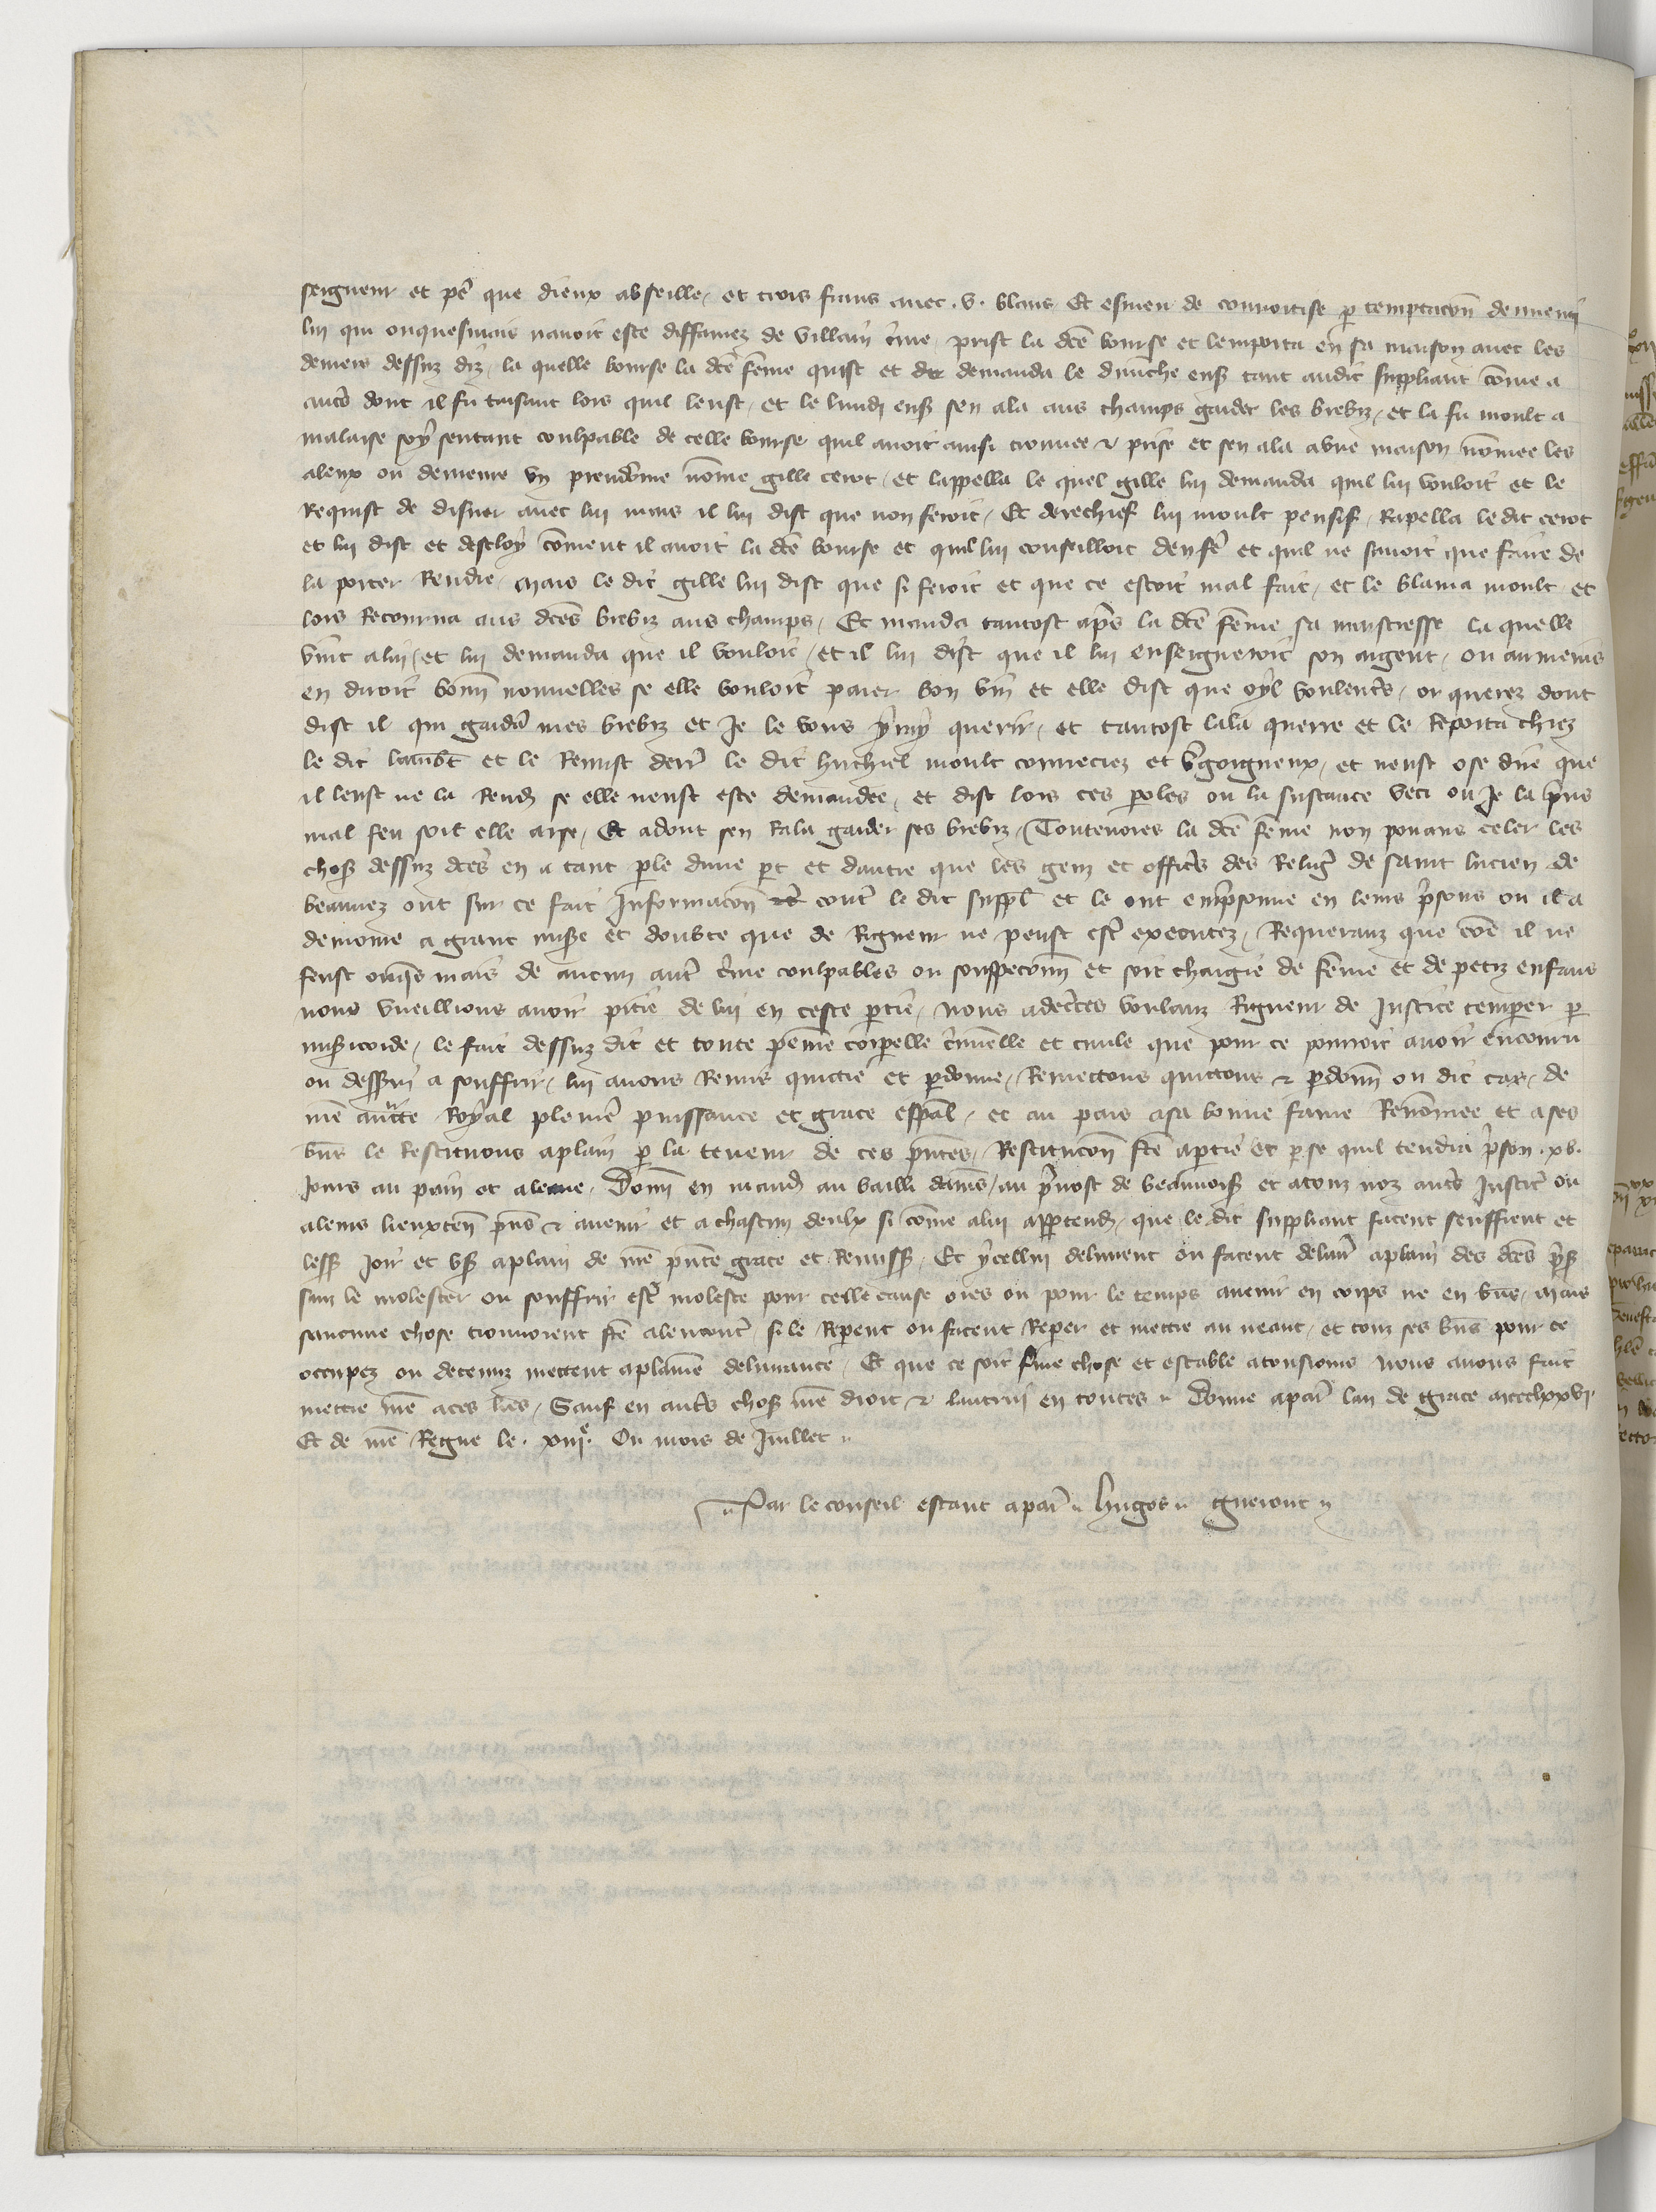 seigneur et pe que dieux absoille et trois frans avec .v. blans Et esmeu de convoitise p temptacon de nnemi
lui qui onquesmais navoit este diffamez de villain cme prist la dce bourse et lemporta en sa maison avec les
deniers dessuz diz la quelle bourse la dce feme quist et demanda le dimiche ens tant audit suppliant come a
autrs dont il fu taisant lors quil leust et le lundi ens sen ala aus champs garder les brebiz et la fu moult a
malaise soy sentant coulpable de celle bourse quil avoit ainsi trouvee & prise et sen ala a une maison nomee les
aleux ou demeure un preudome nome gille cerot et lappella le quel gille lui demanda quil lui vouloit et le
Requist de disner avec lui mais il lui dist que non feroit Et derechief lui moult pensif Rapella le dit cerot
et lui dist et descloy coment il avoit la dce bourse et quil lui conseilloit den fe et quil ne savoit que faire de
la porter Rendre Mais le dit gille lui dist que si feroit et que ce estoit mal fait et le blama moult et
lors Retourna aus dces brebiz aus champs Et manda tantost aps la dce feme sa maistresse la quelle
vint a lui et lui demanda que il vouloit et il lui dist que il lui enseigneroit son argent ou au meins
en diroit bonn nouvelles se elle vouloit paier bon vin et elle dist que oyl voulentrs or querez dont
dist il qui gardra mes brebiz et Je le vous yray querir et tantost lala querre et le Reporta chiez
le dit lambt et le Remist derr le dit huchiel moult courreciez et vgoigneux et neust ose dire que
il leust ne la Rend se elle neust este demandee et dist lors ces poles ou la sustance veci ou Je la prins
mal feu soit elle arse Et adont sen Rala garder ses brebiz Toutevoies la dce feme non pouans celer les
chos dessuz dces en a tant ple dune pt et dautre que les gens et officrs des Religr de saint lucien de
beauvez ont sur ce fait Informacon contr le dit suppl et le ont emprisonne en leurs prisons ou il a
demore a grant misre et doubte que de Rigueur ne peust estr executez Requeranz que come il ne
feust onqs mais de aucun autr cme coulpables ou souspeconn et soit chargie de feme et de petiz enfans
nous vueillions avoir pitie de lui en ceste ptie Nous adcertes voulanz Rigueur de Justice temper p
misicorde le fait dessuz dit et toute peine corpelle cminelle et civile que pour ce pourroit avoir encouru
ou desservi a souffrir lui avons Remis quictie et pdonne Remettons quittons & pdonn ou dit cas de
nre aucte Royal pleine puissance et grace espal et au pais a sa bonne fame Renomee et a ses
bns le Restituons aplain p la teneur de ces pntes Restitucon fce a ptie et p se quil tendra prison .xv.
Jours au pain et a leaue Donn en mand au bailli damies au prevost de beauvoisis et a touz noz autrs Justicr ou
a leurs lieuxtenn pns & avenir et a chascun deulx si come a lui apptend que le dit suppliant facent seuffrent et
less Joir et us aplain de nre pnte grace et Remiss Et ycellui delivrent ou facent delivr aplain des dces pris
sanz le molester ou souffrir estr moleste pour celle cause ores ou pour le temps avenir en corps ne en bns Mais
saucune chose trouvoient fce alencontr si le Reperent ou facent Reper et mettre au neant et touz ses bns pour ce
occupez ou detenuz mettent aplaine delivrance Et que ce soit ferme chose et estable a tousjours Nous avons fait
mettre nre a ces lres Sauf en autrs chos nre droit & lautrui en toutes Donne a par lan de grace mccclxxvi
Et de nre Regne le xiii e Ou mois de Juillet
Par le conseil estant a par Hugot gueront